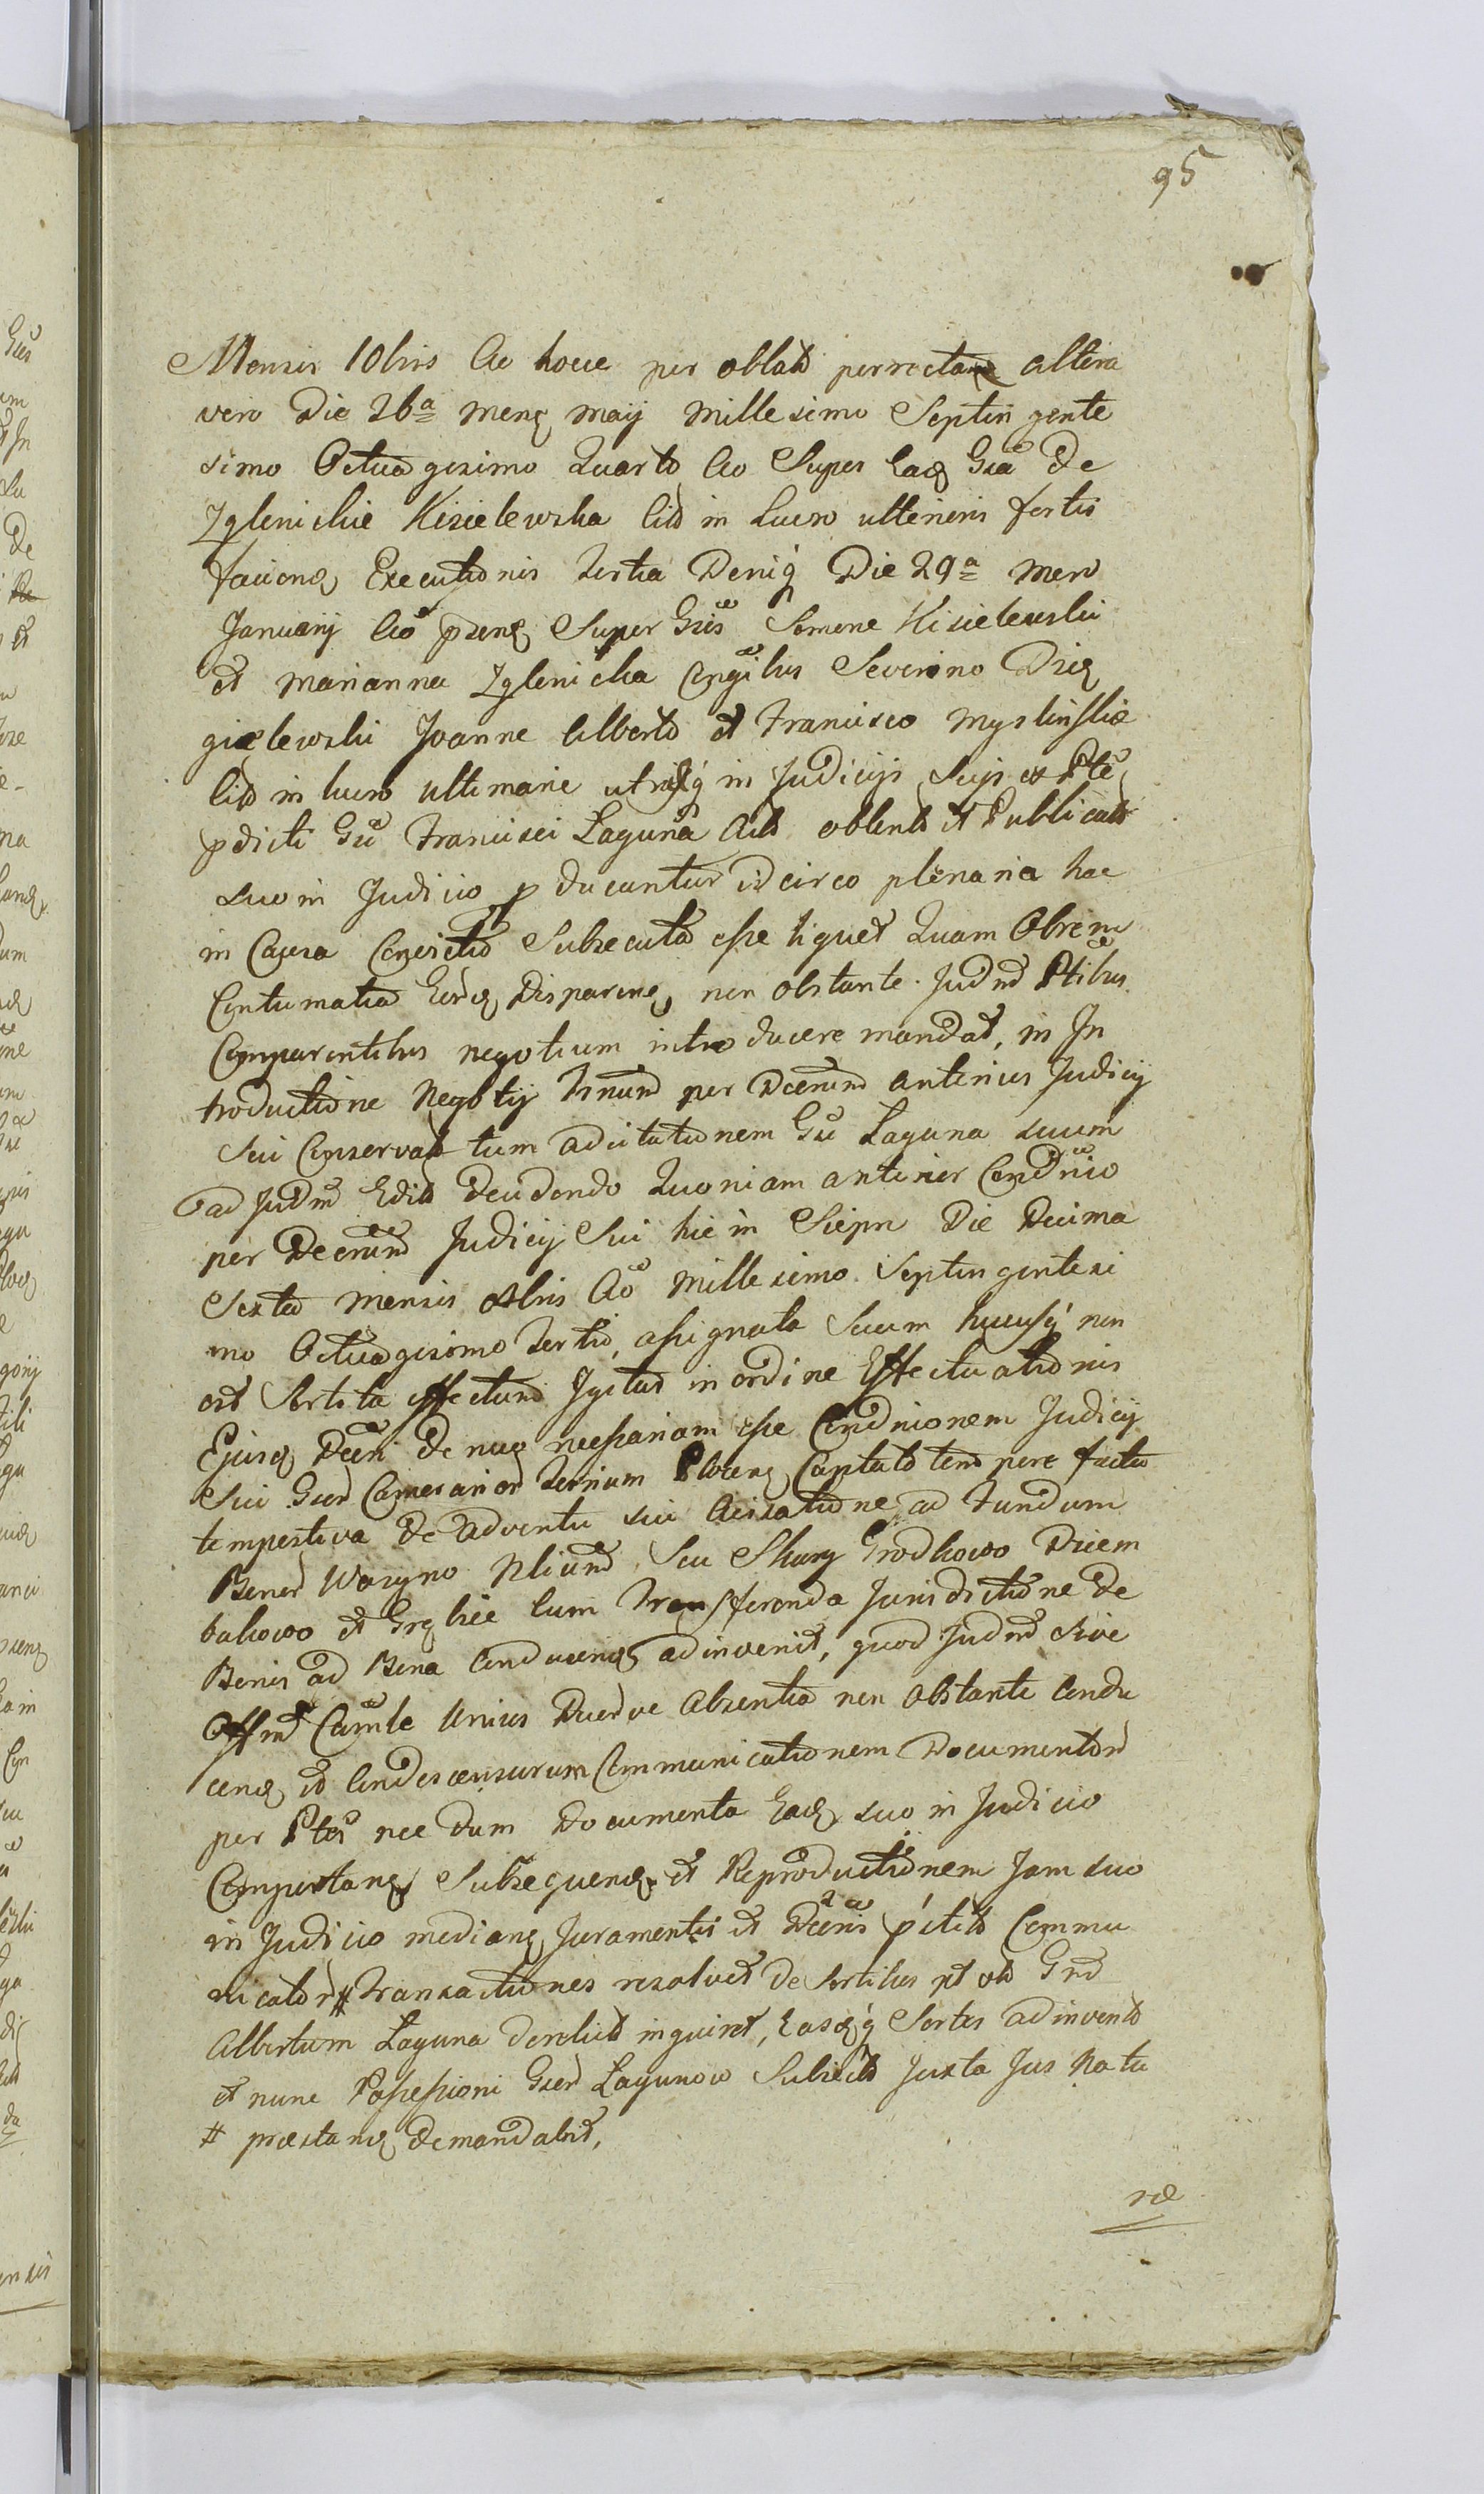 95
Mensis 10bris Ao hocce per oblatd porrectam altera
vero Die 26a Mens Maij Millesimo Septin gente
simo Octuagesimo Quarto Ao Super Ead Gsa De
Zglenickie Kisielewska Citd in Lucro ulterioris fortis
faciend Executionis tertia Deniq Die 29a Men
Januarij Ao psend Super Gsis Simone Kisielewski
et Marianna Zglenicka Congibus Severino Dzię
gielewski Joanne Alberto et Francisco Myslinskie
Citd in lucro ultimarie utriusq in Judicijs Suijs ex Pte
pdicti Gsi Francisci Laguna Actd obtentd et Publicatd
suo in Judicio p ducuntur idcirco plenaria hac
in Causa Convictio Subsecuta esse liquet Quam Obrem
Contumatia Eord Disparend non obstante Judnd Ptibus
Comparentibus negotium introducere mandat, in In
troductione Negotij Tnum per Dcenum anterius Judicij
Sui Conservat tum ad citationem Gsi Laguna suum
ad Judm Editd Decidendo Quoniam anterior Condnio
per Decrum Judicij Sui hic in Sierpn Die Decima
Sexta Mensis 8bris Ao Millesimo Septin gentesi
mo Octuagesimo tertio, assignata Suum hucusq non
est Sortita effectum Igitur in ordine Effectuationis
Ejusd Dcri De nuo necssariam esse Condnionem Judicij
Sui Gser Camerarior terrium Plocens Captato tempore factu
tempestiva De adventu sui Avisatione ad Fundum
Bonor Wozyno Skury Grodkowo Dziem
bakowo et Grębice Cum Transferenda Jurisdictione De
Bonis ad Bona Conducend adinvenit, quod Judnd Sive
Offnd Camle Unius Duorve Absentia non Obstante Condu
cend et Condescensurum Communicationem Documentor
per Ptes nec dum Documenta Ead suo in Judicio
Comportand Subsequend et Reproductionem Jam suo
in Judicio mediand Juramentis et Dcenis Commu
nicator # Transactiones resolvet De Sortibus Gnd
Albertum Laguna derelict inquiret, Easd q Sortes adinvent
et nunc Possessioni Gser Lagunow Subiect Juxta Jus Natu
# præstand Demandabit,
ræ